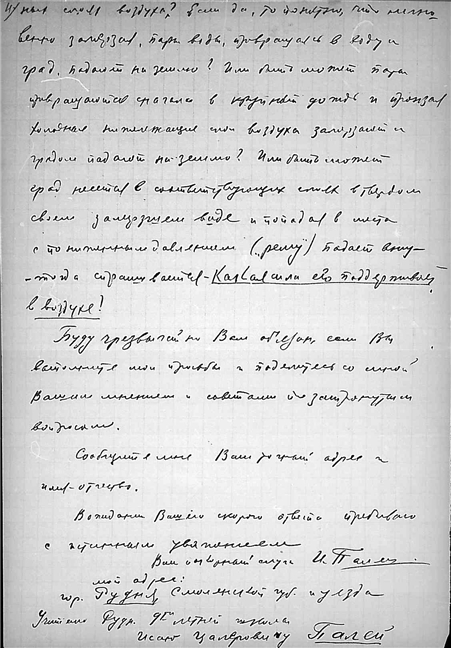 слоях воздуха? Если да, то понятно, что мгно-
венно замерзая, пары воды, превращаясь в воду и
град, падают на землю? Или быть может пары
превращаются сначала в крупный дождь и пронзая
холодная нижележащие слои воздуха замерзают и
градом падают на землю? Или быть может
град несется в соответствующих слоях в твердом
своем замерзшем виде и попадая в места
с пониженным давлением („ “) падает вниз-
-тогда спрашивается - Какая сила его поддерживает
в воздухе?
Буду чрезвычайно Вам обязан, если Вы
выполните мои просьбы и поделитесь со мной
Вашим мнением и советами по затронутым
вопросам.
Сообщите мне Ваш точный адрес и
имя-отчество.
В ожидании Вашего скорого ответа пребываю
с истинным уважением
Ваш покорный слуга И. Палей.
мой адрес:
гор. Рудня Смоленской губ. и уезда
Рудн. летней школы
Исаак Палей